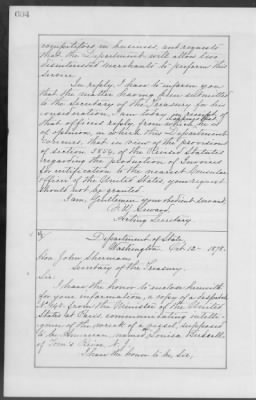 604
competitors in business, and requests
that the Department will allow two
disinterested merchants to perform this
service.
In reply, I have to inform you
that the matter having been submitted
to the Secretary of the Treasury for his
consideration, I am today in receipt of
that officer's reply, from which he is
of opinion, in which this Department
concurs, that in view of the provisions
of section of the Revised Statutes
regarding the production of Invoices
for certification to the nearest Consular
officer of the United States, your request
should not be granted.
I am, Gentlemen, your obedient servant,
F. W. Seward,
Acting Secretary.
Department of State,
Washington, Oct. 12th 1878.
Hon. John Sherman,
Secretary of the Treasury.
Sir:
I have the honor to enclose herewith
for your information, a copy of a despatch
from the Minister of the United
States at communicating intelli-
gence of the wreck of a vessel, supposed
to be American, named Louisa
of Tom's River, N.J.
I have the honor to be, Sir,